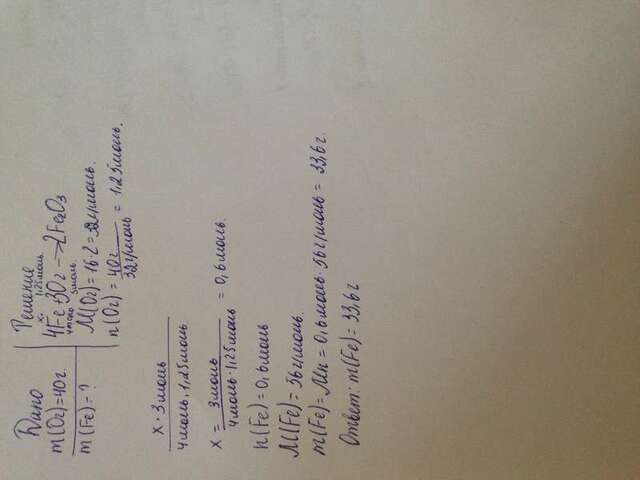 Дано
m(O2)=40г.
m(Fe)-?
Решение
x. 1,25моль.
4Fe+3O2->2Fe2O3
4моль 3моль.
M(O2)=16·2=32г/моль.
n(O2)= 40г / 32г/моль = 1,25моль.
x·3моль
4моль·1,25моль.
x= 3моль / 4моль·1,25моль = 0,6моль.
n(Fe)=0,6моль
M(Fe)=56г/моль.
m(Fe)=Mn=0,6моль·56г/моль=33,6г.
Ответ: m(Fe)=33,6г